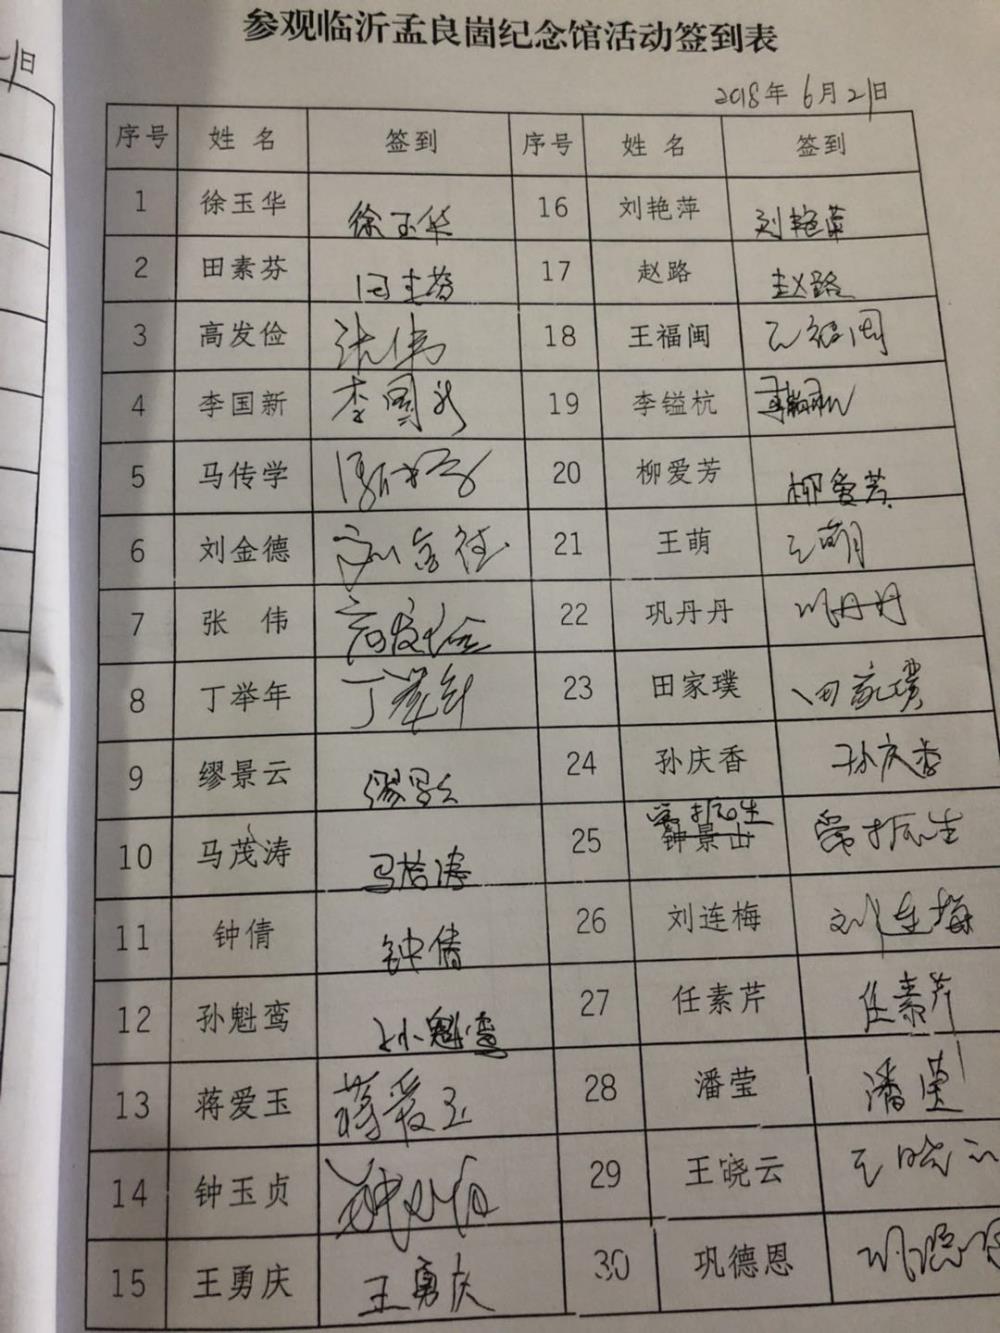 日
参观临沂孟良崮纪念馆活动签到表
2018年 6月21日
序号 姓 名 签到 序号 姓 名 签到
1 徐玉华 徐玉华 16 刘艳萍 刘艳萍
2 田素芬 田素芬 17 赵路 赵路
3 高发俭 张伟 18 王福闽 王福闽
4 李国新 李国新 19 李镒杭
5 马传学 马传学 20 柳爱芳 柳爱芳
6 刘金德 刘金德 21 王萌 王萌
7 张 伟 高发俭 22 巩丹丹 巩丹丹
8 丁举年 丁举年 23 田家璞 田家璞
9 缪景云 缪景云 24 孙庆香 孙庆香
10 马茂涛 25 钟景山
11 钟倩 钟倩 26 刘连梅 刘连梅
12 孙魁鸾 孙魁鸾 27 任素芹 任素芹
13 蒋爱玉 蒋爱玉 28 潘莹 潘莹
14 钟玉贞 钟玉贞 29 王晓云 王晓云
15 王勇庆 王勇庆 30 巩德恩 巩德恩